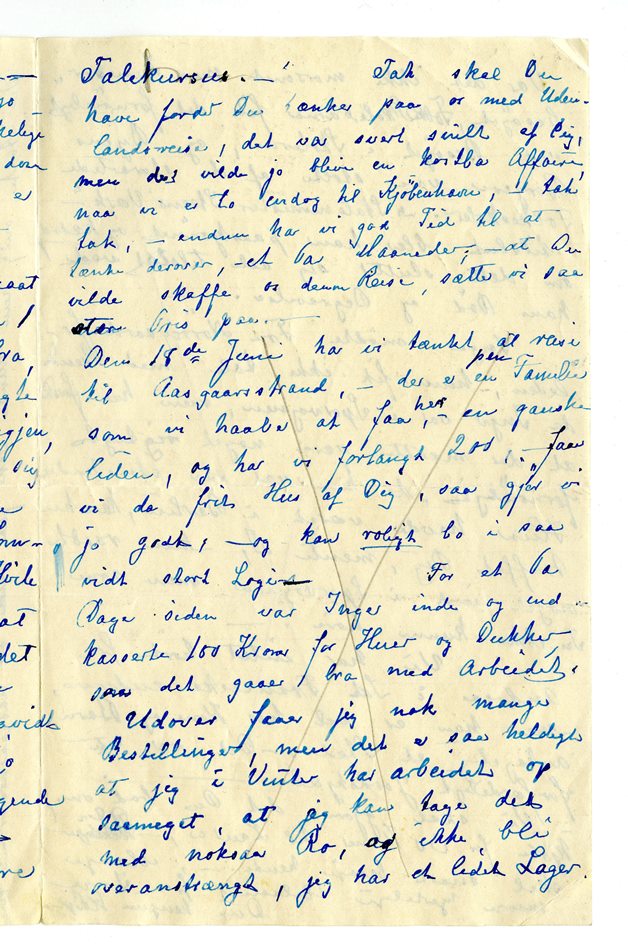 Talekursus. –!     Tak skal Du
have fordi Du tænker paa os med Uden-
landsreise, det var svert snilt af Dig,
men det vilde jo blive en kostba Affaire
naa vi er to endog til Kjöbenhavn, – tak
tak, – endnu har vi god Tid til at
tænke derover, – et Par Maaneder, – at Du
vilde skaffe os denne Reise, sætte vi saa
stor Pris paa. –
Den 18de Juni har vi tænkt at reise
til Aasgaarsstrand, – der er en pen Familie
som vi haabe at faa her, – en ganske
liden, og har vi forlangt 200, – faar
vi da frit Hus af Dig, saa gjør vi
jo godt, – og kan roligt bo i saa
vidt stort Logis –     For et Par
Dage siden var Inger inde og ind-
kasserte 100 Kroner for Huer og Dukker,
saa det gaaer bra med Arbeidet.
Udover faaer jeg nok mange
Bestillinger, men det er saa heldigt
at jeg i Vinter har arbeidet op
saameget, at jeg kan tage det
med noksaa Ro, og ikke bli
overanstrængt, jeg har et lidet Lager.
ø
kelige
dom
er
bra,
sig
Hvile
at
det
gende